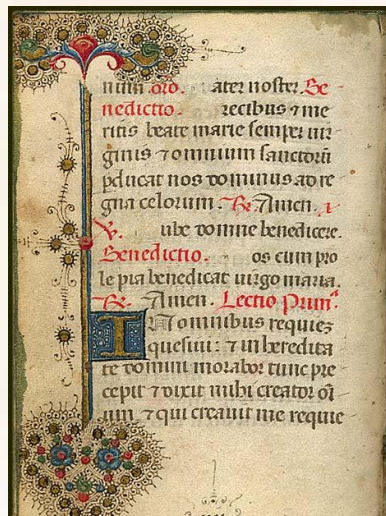 num. oro. ater noster. Be
nedictio. recibus ⁊ me
ritis beate marie semper uir
ginis ⁊ omnium sanctorũ
pducat nos dominus ad re
gna celorum. R. Amen.
V. ube domne benedicere.
Benedictio. os cum pro
le pia benedicat uirgo maria.
R. Amen. Lectio Primᵃ
IN omnibus requiez
quesiui: ⁊ in heredita
te domini morabor tunc pre
cepit ⁊ dixit mihi creator oĩ
um ⁊ qui creauit me requie